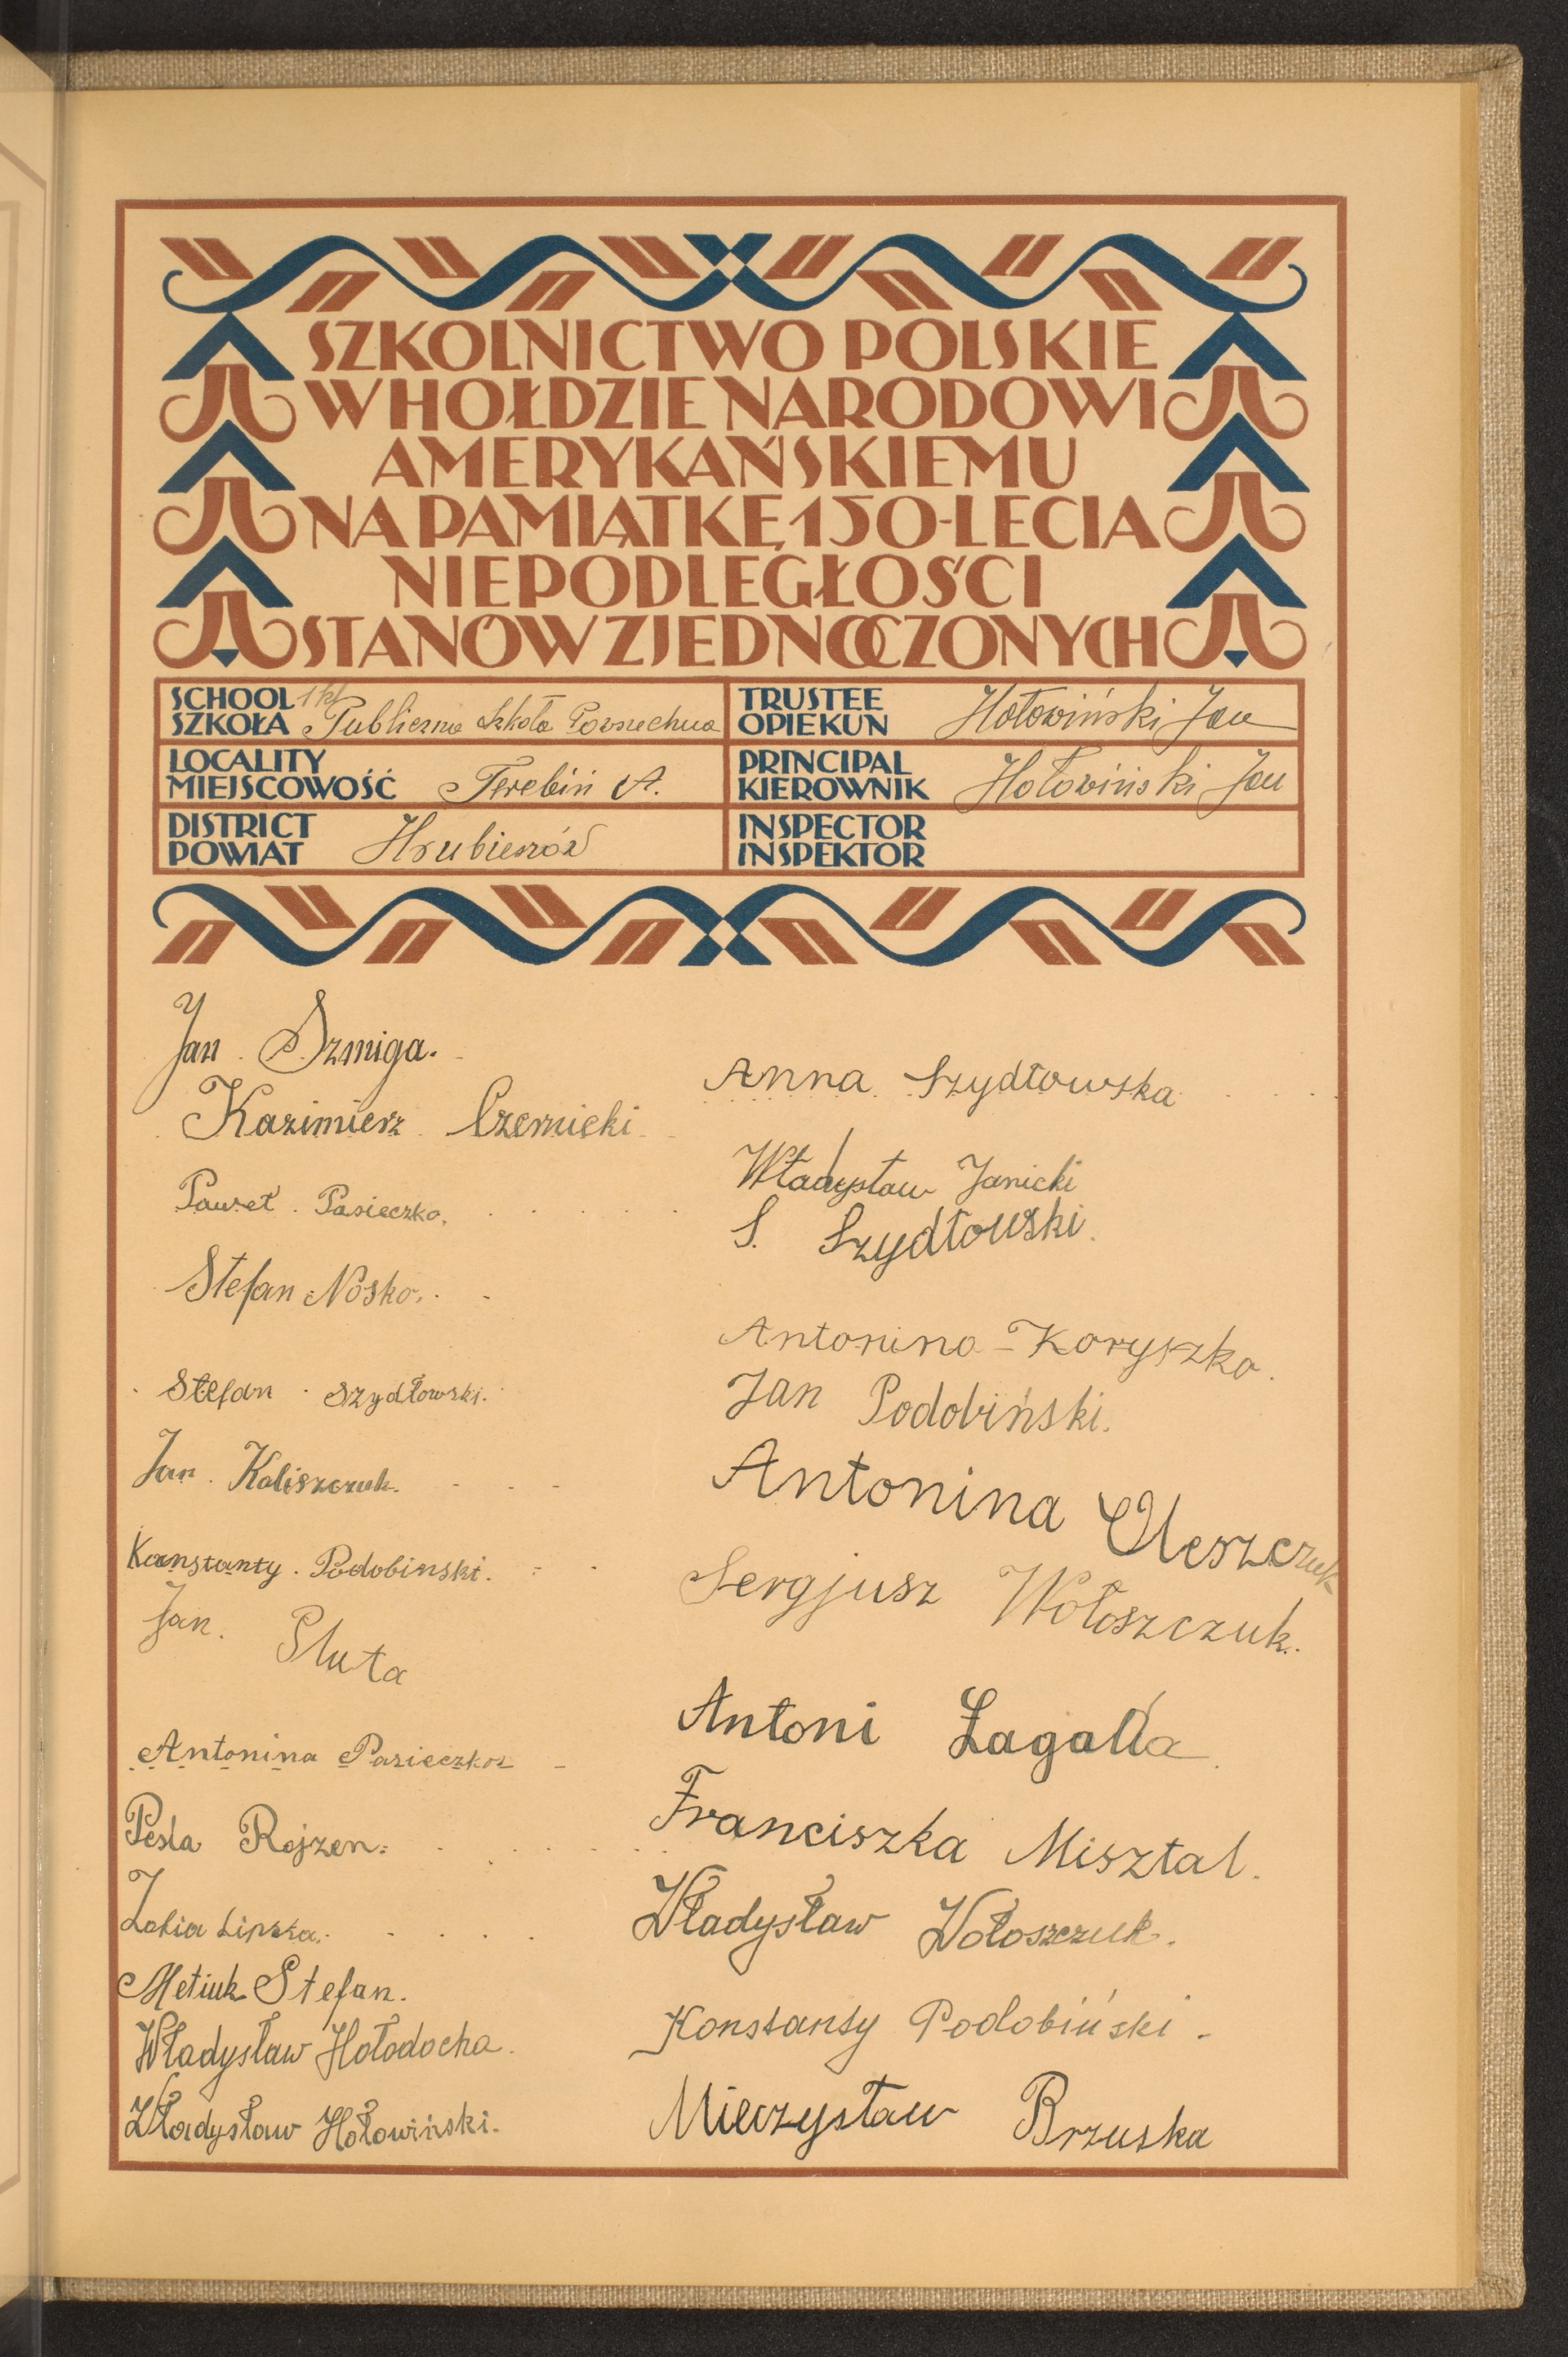 SZKOLNICTWO POLSKIE
W HOŁDZIE NARODOWI
AMERYKAŃSKIEMU
NA PAMIĄTKĘ 150-LECIA
NIEPODLEGŁOŚCI
STANÓW ZJEDNOCZONYCH
SCHOOL
SZKOŁA
1 kl
Publiczna Szkoła Powszechna
TRUSTEE
OPIEKUN
Hołowiński Jan
LOCALITY
MIEJSCOWOŚĆ
Terebiń A.
PRINCIPAL
KIEROWNIK
Hołowiński Jan
DISTRICT
POWIAT
Hrubieszów
INSPECTOR
INSPEKTOR
Jan Szmiga.
Kazimierz Czernicki
Paweł Pasieczko.
Stefan Nosko.
Stefan Szydłowski.
Jan Kaliszczuk.
Konstanty Podobinski.
Jan. Pluta
Antonina Pasieczko
Pesla Rojzen.
Zofia Lipska.
Metiuk Stefan.
Władysław Hołodocha.
Władysław Hołowiński.
Anna Szydłowska
Władysław Janicki
S. Szydłowski.
Antonina - Koryszko.
Jan Podobiński.
Antonina Oleszczuk
Sergjusz Wołoszczuk.
Antoni Żagalla
Franciszka Misztal.
Władysław Wołoszczuk.
Konstanty Podobiński -
Mieczysław Brzuska